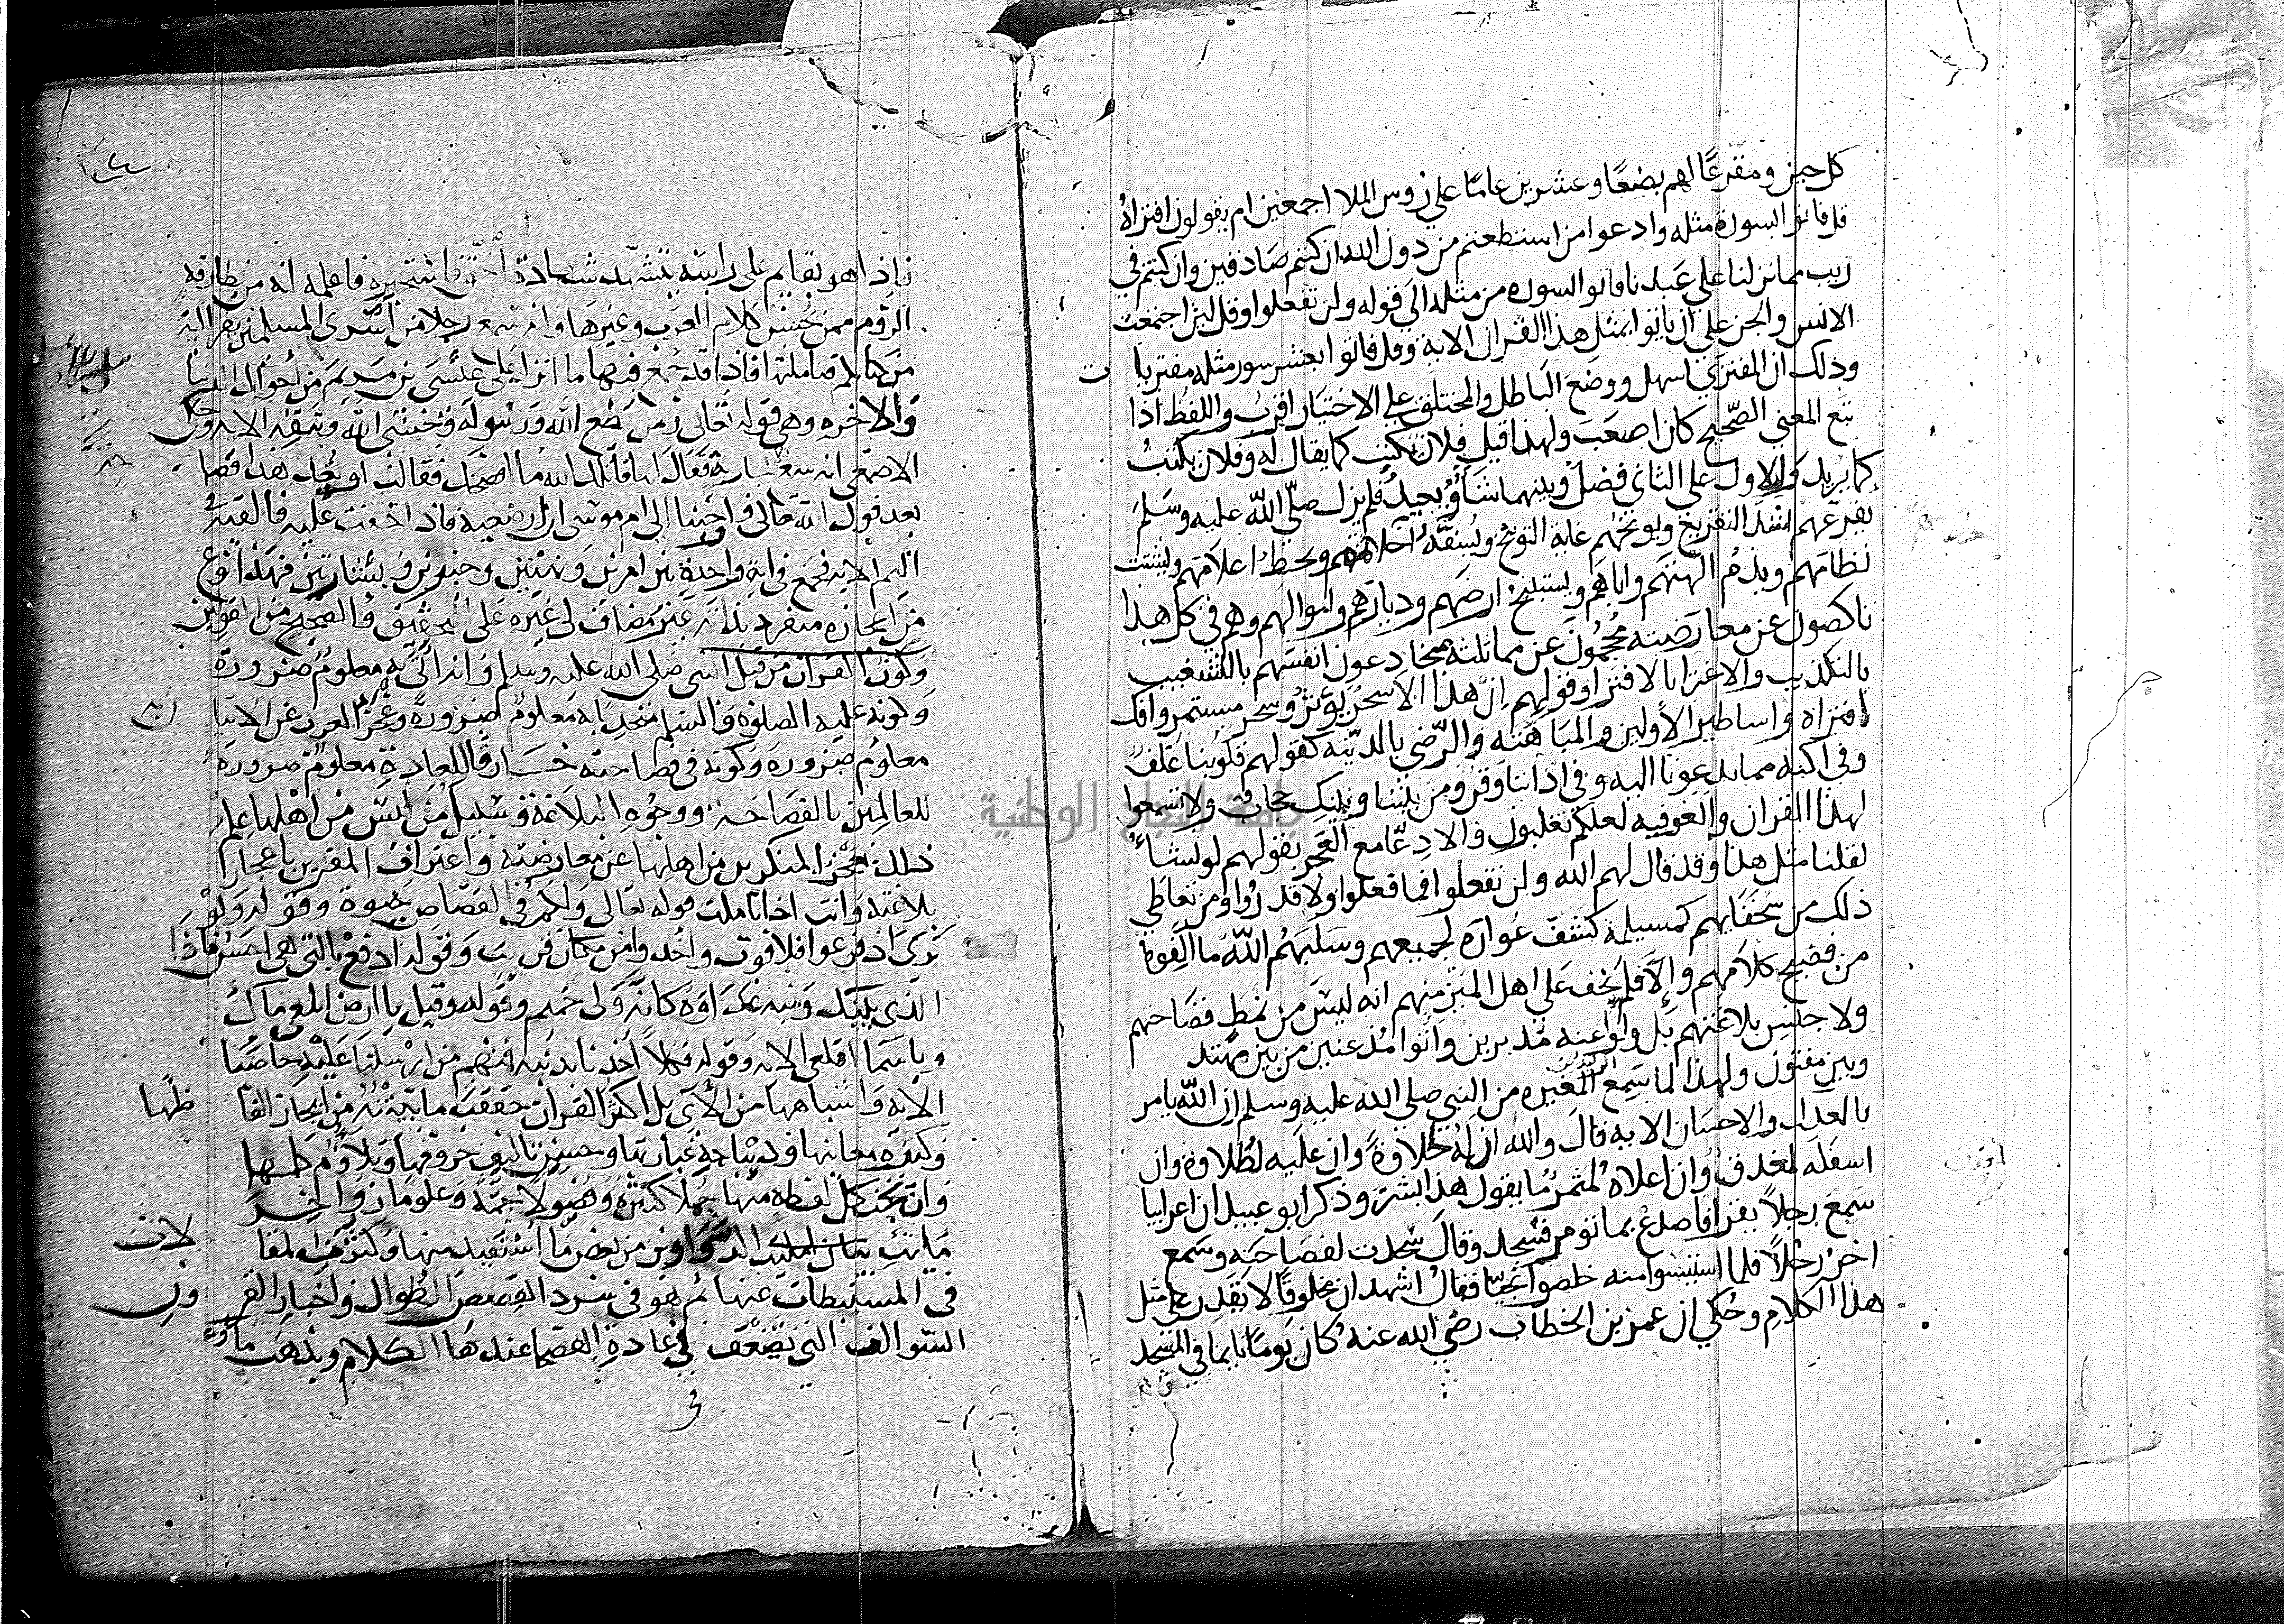 كل حين ومقرعًا لهم بضعًا وعشرين عامًا على روس الملا اجمعين ام يقولون افتراهُ
قل فاتوا بسورة مثله وادعوا من استطعتم من دون الله ان كنتم صادقين وان كنتم في
ريب مما نزلنا على عبدنا فاتوا بسوره من مثله الى قوله ولن تفعلوا وقل لئن اجتمعت
الانس والجن على ان ياتوا بمثل هذا القران الاية وقل فاتوا بعشر سور مثله مفتريات
وذلك ان المفترَي اسهل ووضعَ الباطل والمختلق على الاختيار اقرب واللفظ اذا
تبع المعني الصّحيح كان اصعَبَ ولهذا قيل فلان يكتب كما يقال له وفلان يكتبُ
كما يريد وللاول على الثاني فضل وبينهما شَأوٌ بعيدٌ فلم يزل صلّى اللّه عليه وسلم
يقرّعهم اشد التقريع ويوبخهم غاية التوبيخ ويُسفّهُ احلامهم ويحطُ اعلامَهم ويشتت
نظامَهم ويذمُ الهتهم واباهم ويستبيحُ ارضهم وديارهم واموالهم وهم في كل هذا
ناكصون عن معارضته محجمُون عن مماثلته مخادعون انفسَهم بالتشغيب
بالتكذيب والاغترا بالافترا وقولهم ان هذا الا سحرٌ يؤثرُ وسحر مستمر وافك
افتراه واساطير الأولين والمبَاهتة والرّضى بالدنيّه كقولهم قلوبنا غلفٌ
وفي اكنه مما تدعونا اليه وفي اذاننا وقرٌ ومن بيننا وبينك حجاب ولا تسمعوا
لهذا القران والغوا فيه لعلكم تغلبون والادّعا مع العجز بقولهم لو نشاءُ
لقلنا مثل هذا وقد قال لهم الله ولن تفعلوا فما فعلوا ولا قدروا ومن تعاطَي
ذلك من سُخَفايهم كمسيلمة كشف عُوارَه لجميعهم وسَلبَهُم اللّهُ ما الفوهُ
من فصيح كلامهم وإلّا فلم يخف على اهل الميْز منهم انه ليسَ من نمَطِ فصاحتهم
ولا جنسِ بلاغتهم بل ولّوا عنه مدبرين واتوا مُذعنين من بين مهتد
وبين مفتون ولهذا لما سَمِع الوليد بن المغيره من النبي صلي الله عليه وسلم ان اللّه يامر
بالعدل والاحسَان الايه قالَ والله ان لهُ لحلاوةً وان عليه لطُلاوة وان
اسفَله لمغدقٌ وان اعلاهُ لمثمرٌ ما يقول هذا بشر وذكر ابو عبيد ان اعرابيا
سمعَ رجلاً يقرا فاصدعْ بما تومر فسَجد وقالَ سَجدت لفصَاحَتِه وسَمع
اخرُ رجُلاً فلما استيئسوا منه خلصوا نجيّا فقالُ اشهد ان مخلوقًا لا يقدر على مثل
هذا الكلامِ وحُكي ان عمر بن الخطاب رضي الله عنهُ كان يومًا نايما في المسجد
فاذا هو بقايم على راسه يتشهد شهادة الحقّ فاستخبره فاعلمه انه من بطارقة
الروم ممن يحسن كلام العرب وغيرها وانه سمع رجلا من اسرى المسلمين يقرا اية
من كتابكم فتاملتها فاذا قد جُمع فيها ما انزل على عيسَى بن مَريَم من احوال الدنيا
والاخره وهي قوله تعالى ومن يطع اللهَ ورَسُولَه ويخشى الله ويتقه الايه وحكى
الاصمعي انه سمع جارية فقال لها قاتلك الله ما افصحك فقالت او يُعد هذا فصا
بعد قول الله تعالى واوحينا الى ام موسى ان ارضعيه فاذا خفت عليه فالقيه في
اليم الايه فجمَع في ايةٍ واحدةٍ بين امرين ونهيَين وخبرين وبشارتين فهذا نوع
من اعجازه منفرد بذاته غير مضاف لى غيره على التحقيق والصحيح من القولين
وكونُ القران من قبل النبي صلى الله عليه وسلم وانه اتَى به معلومٌ ضرورة
وكونه عليه الصلوة والسلم متحديا به معلومٌ ضرورةً وعَجز العرب عن الاتيان به
معلومٌ ضرورة وكونه في فصاحته خارقا للعادة معلومٌ ضرورةً
للعالمين بالفصَاحة ووجُوهِ البلاغة وسبيلُ من ليسَ من اهلها علم
ذلك بعَجْز المنكرين من اهلها عن معارضته واعتراف المقرين باعجاز
بلاغته وانت اذا تاملت قوله تعالى ولكم في القصاص حيوة وقوله ولوْ
تَرَىَ اذ فزعوا فلا فوت واخذوا من مكان قريب وقوله ادفع بالتي هي احسَن فاذا
الذي بينك وبينه عداوة كانّه ولى حميم وقوله وقيل يا ارض ابلعي ماكِ
ويا سَما اقلعى الايه وقوله فكلاً اخذنا بذنبه فمنهم من ارسلنا عليه حاصبا
الاية واشباهها من الآي بل اكثر القران حققت ما بينتُهُ من ايجاز الفاظها
وكثرة معانيها وديباجة عبارتها وحسن تاليف حروفها وتلاؤُم كلمها
وان تحت كل لفظه منها جُملا كثيرة وفصولا جمّة وعلومًا زواخِرَ
مُلئت الدواوين من بعض ما استفيد منها وكثرت المقالات
في المستنبطات عنها ثم هو في سَرد القصَص الطوال واخبار القرون
السّوالف التي يَضْعُف في عادة الفصحا عندها الكلام ويذهَب ماءُ